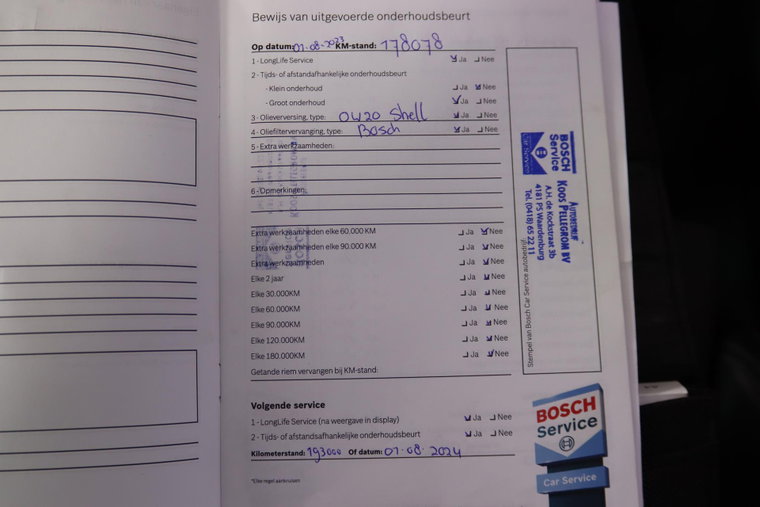 Bewijs van uitgevoerde onderhoudsbeurt
Op datum: 01-08-2023 KM-stand: 178078
1 - LongLife Service Ja Nee
2 - Tijds- of afstandafhankelijke onderhoudsbeurt
- Klein onderhoud Ja Nee
- Groot onderhoud Ja Nee
3 - Olieverversing, type: 0W20 Shell Ja Nee
4 - Oliefiltervervanging, type: Bosch Ja Nee
5 - Extra werkzaamheden:
6 - Opmerkingen:
Extra werkzaamheden elke 60.000 KM Ja Nee
Extra werkzaamheden elke 90.000 KM Ja Nee
Extra werkzaamheden Ja Nee
Elke 2 jaar Ja Nee
Elke 30.000KM Ja Nee
Elke 60.000KM Ja Nee
Elke 90.000KM Ja Nee
Elke 120.000KM Ja Nee
Elke 180.000KM Ja Nee
Getande riem vervangen bij KM-stand:
Volgende service
1 - LongLife Service (na weergave in display) Ja Nee
2 - Tijds- of afstandsafhankelijke onderhoudsbeurt Ja Nee
Kilometerstand: 193000 Of datum: 01-08-2024
*Elke regel aankruisen
BOSCH
Service
Car Service
AUTOBEDRIJF
KOOS PELLEGROM BV
A.H. de Kockstraat 3b
4181 PS Waardenburg
Tel. (0418) 65 22 11
Stempel van Bosch Car Service autobedrijf:
BOSCH
Service
Car Service